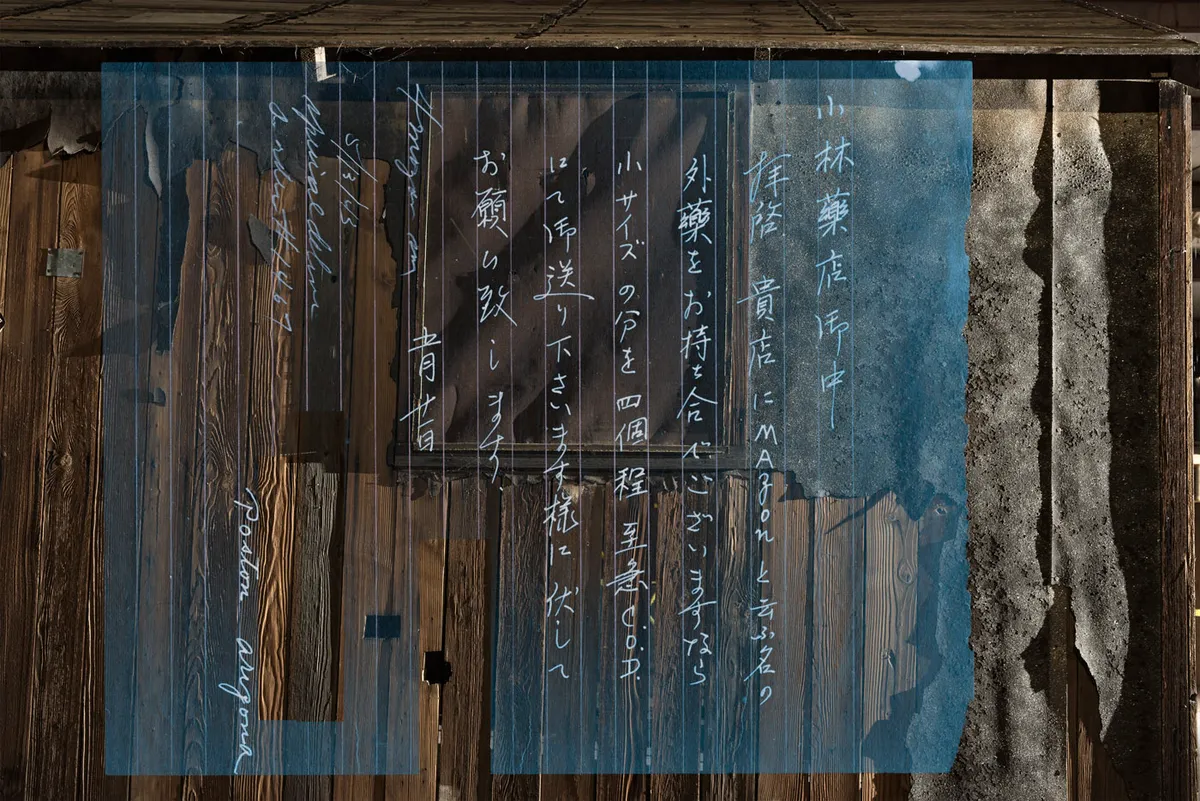 小林藥店御中
拝啓 貴店にMAgonと云ふ名の
外藥をお持ち合でございますなら
小サイズの分を四個程至急C.O.D.
にて御送り下さいます様に伏して
お願ひ致します。
五月廿日
5/3/43
Poston arizona